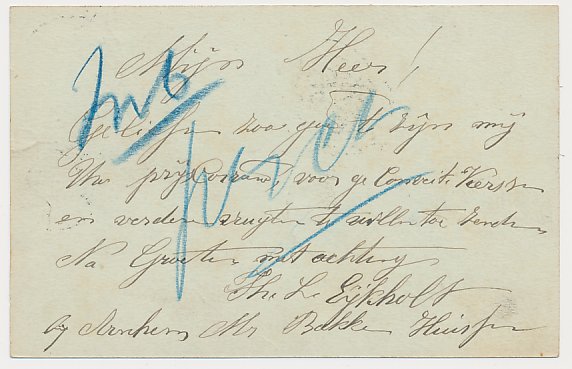 Mijn Heer!
Gelieve zoo goed te zijn mij
Uw prijscourant, voor geconfijte Kersen
en verdere vrugten te willen toe zenden
Na Groeten met achting
Th. L. Eijkholt
bij Arnhem Mr. Bakker Huissen